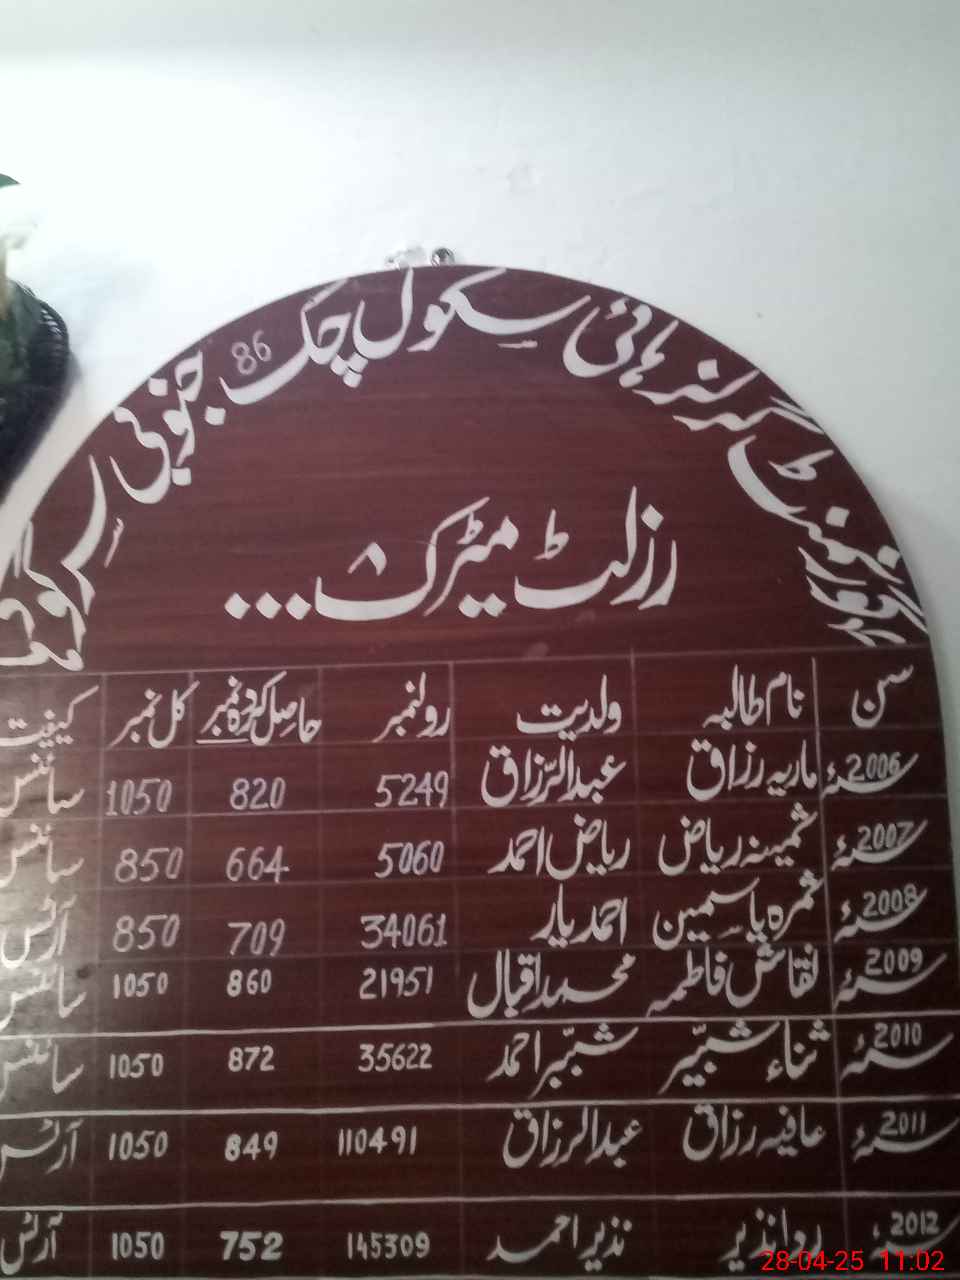 گورنمنٹ گرلز ہائی سکول چک 86 جنوبی سرگودھا
رزلٹ میٹرک...
سن نام طالبہ ولدیت رولنمبر حاصل کردہ نمبر کل نمبر کیفیت
2006ء ماریہ رزاق عبدالرّزاق 5249 820 1050 سائنس
2007ء ثمینہ ریاض ریاض احمد 5060 664 850 سائنس
2008ء ثمرہ یاسمین احمد یار 34061 709 850 آرٹس
2009ء نقاش فاطمہ محمد اقبال 21951 860 1050 سائنس
2010ء ثناء شبّیر شبّیر احمد 35622 872 1050 سائنس
2011ء عافیہ رزاق عبدالرزاق 110491 849 1050 آرٹس
2012ء ردا نذیر نذیر احمد 145309 752 1050 آرٹس
28-04-25 11:02